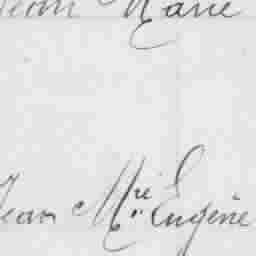 Jean Marie
Jean Mie Eugène